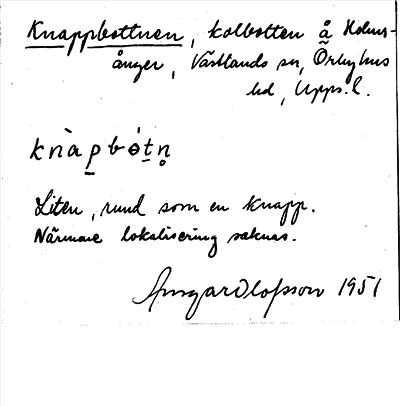 Knappbottnen, kolbotten å Holms-
ånger, Västlands sn, Örbyhus
hd, Upps. l.
knàpbòtn̥
Liten, rund som en knapp.
Närmare lokalisering saknas.
Olofsson 1951